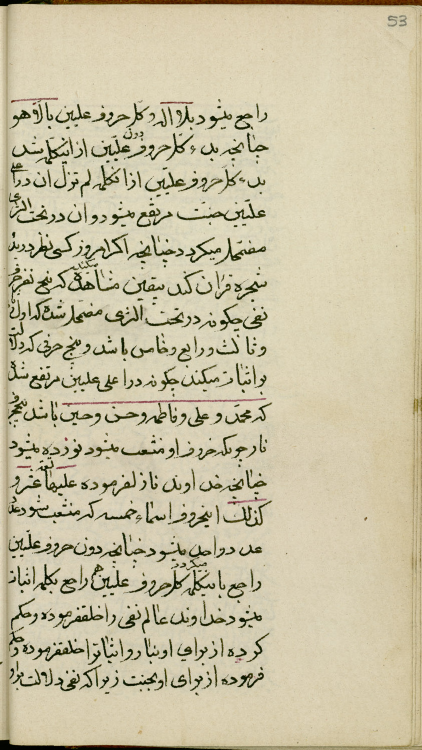 53
راجع میشود بلا اله و کل حروف علیین بالا هو
چنانچه بدء کل حروف دون علیین از این کلمه شد
بدء کل حروف علیین از ان کلمه لم تزل ان در اعلی
علیین جنت مرتفع میشود و ان در تحت الثری
مضمحل میگردد چنانچه اگر امروز کسی نظر در بدء
شجره قران کند بیقین مشاهده میکند که پنج نفر حرف
نفی چگونه در تحت الثری مضمحل شده که اول و ثانی
و ثالث و رابع و خامس باشد و پنج حرفی که دلالت
بر اثبات میکند چگونه در اعلی علیین مرتفع شده
که محمد و علی و فاطمه و حسن و حسین باشد پنج حرف
نار چونکه حروف او منشعب میشود نوزده میشود
چنانچه خداوند نازل فرموده علیها تسعة عشر و
کذلک اینحروف اسماء خمسه که منشعب شود
عدد واحد میشود چنانچه دون حروف علیین
راجع باینکلمه میگردد کل حروف علیین هم راجع بکلمه اثبات
میشود خداوند عالم نفی را خلقفرموده و حکم
کرده از برای او بنار و اثباترا خلقفرموده و حکم
فرموده از برای او بجنت زیرا که نفی دلالت